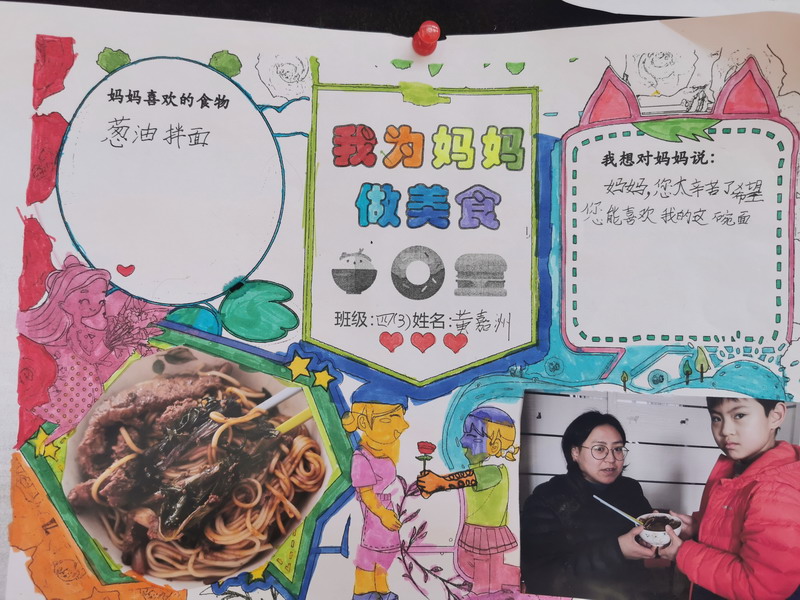 妈妈喜欢的食物
葱油拌面
我为妈妈
做美食
班级:四(3)姓名:黄嘉洲
我想对妈妈说:
妈妈,您太辛苦了希望
您能喜欢我的这碗面